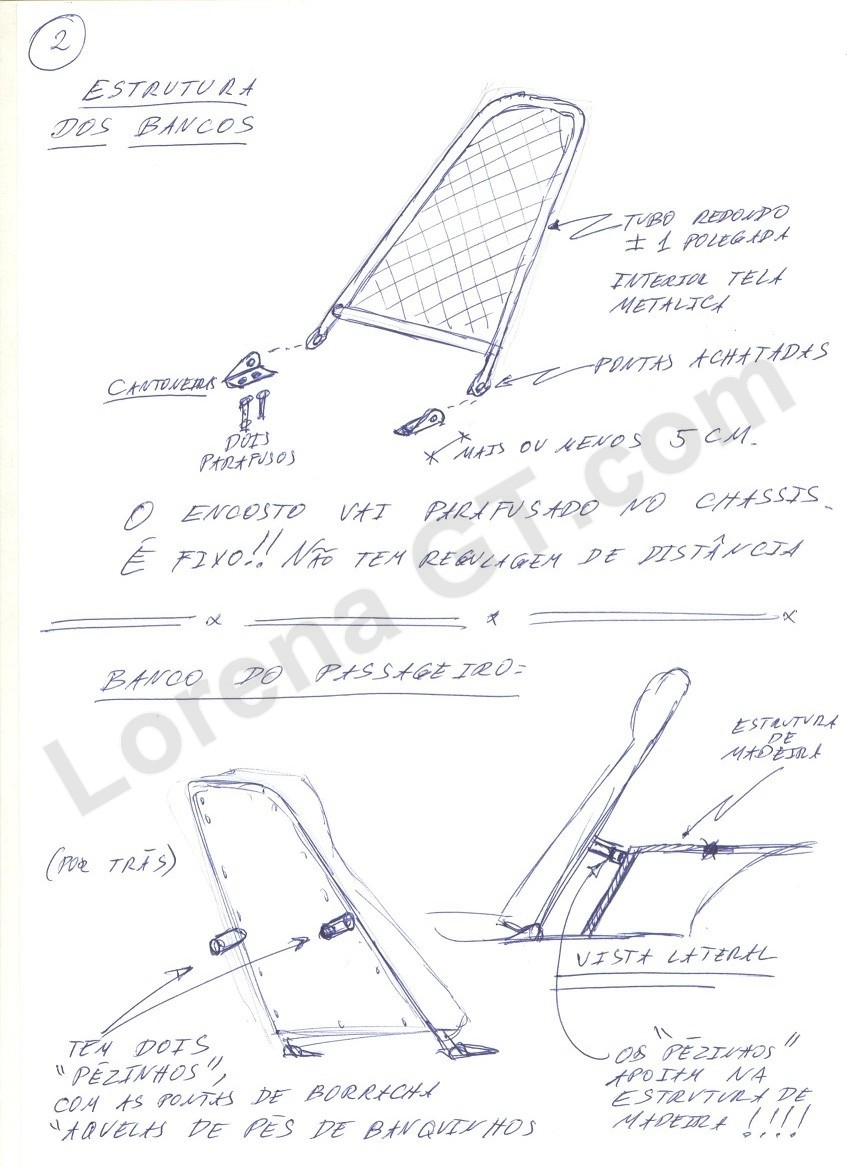 2
ESTRUTURA
DOS BANCOS
TUBO REDONDO
± 1 POLEGADA
INTERIOR TELA
METALICA
PONTAS ACHATADAS
CANTONEIRAS
DOIS
PARAFUSOS
* MAIS OU MENOS 5 CM.
O ENCOSTO VAI PARAFUSADO NO CHASSIS.
É FIXO!! NÃO TEM REGULAGEM DE DISTÂNCIA
BANCO DO PASSAGEIRO=
ESTRUTURA
DE
MADEIRA
(POR TRÁS)
VISTA LATERAL
TEM DOIS
"PÉZINHOS",
COM AS PONTAS DE BORRACHA
"AQUELAS DE PÉS DE BANQUINHOS
OS "PÉZINHOS"
APOIAM NA
ESTRUTURA DE
MADEIRA!!!!
Lorena GT.com